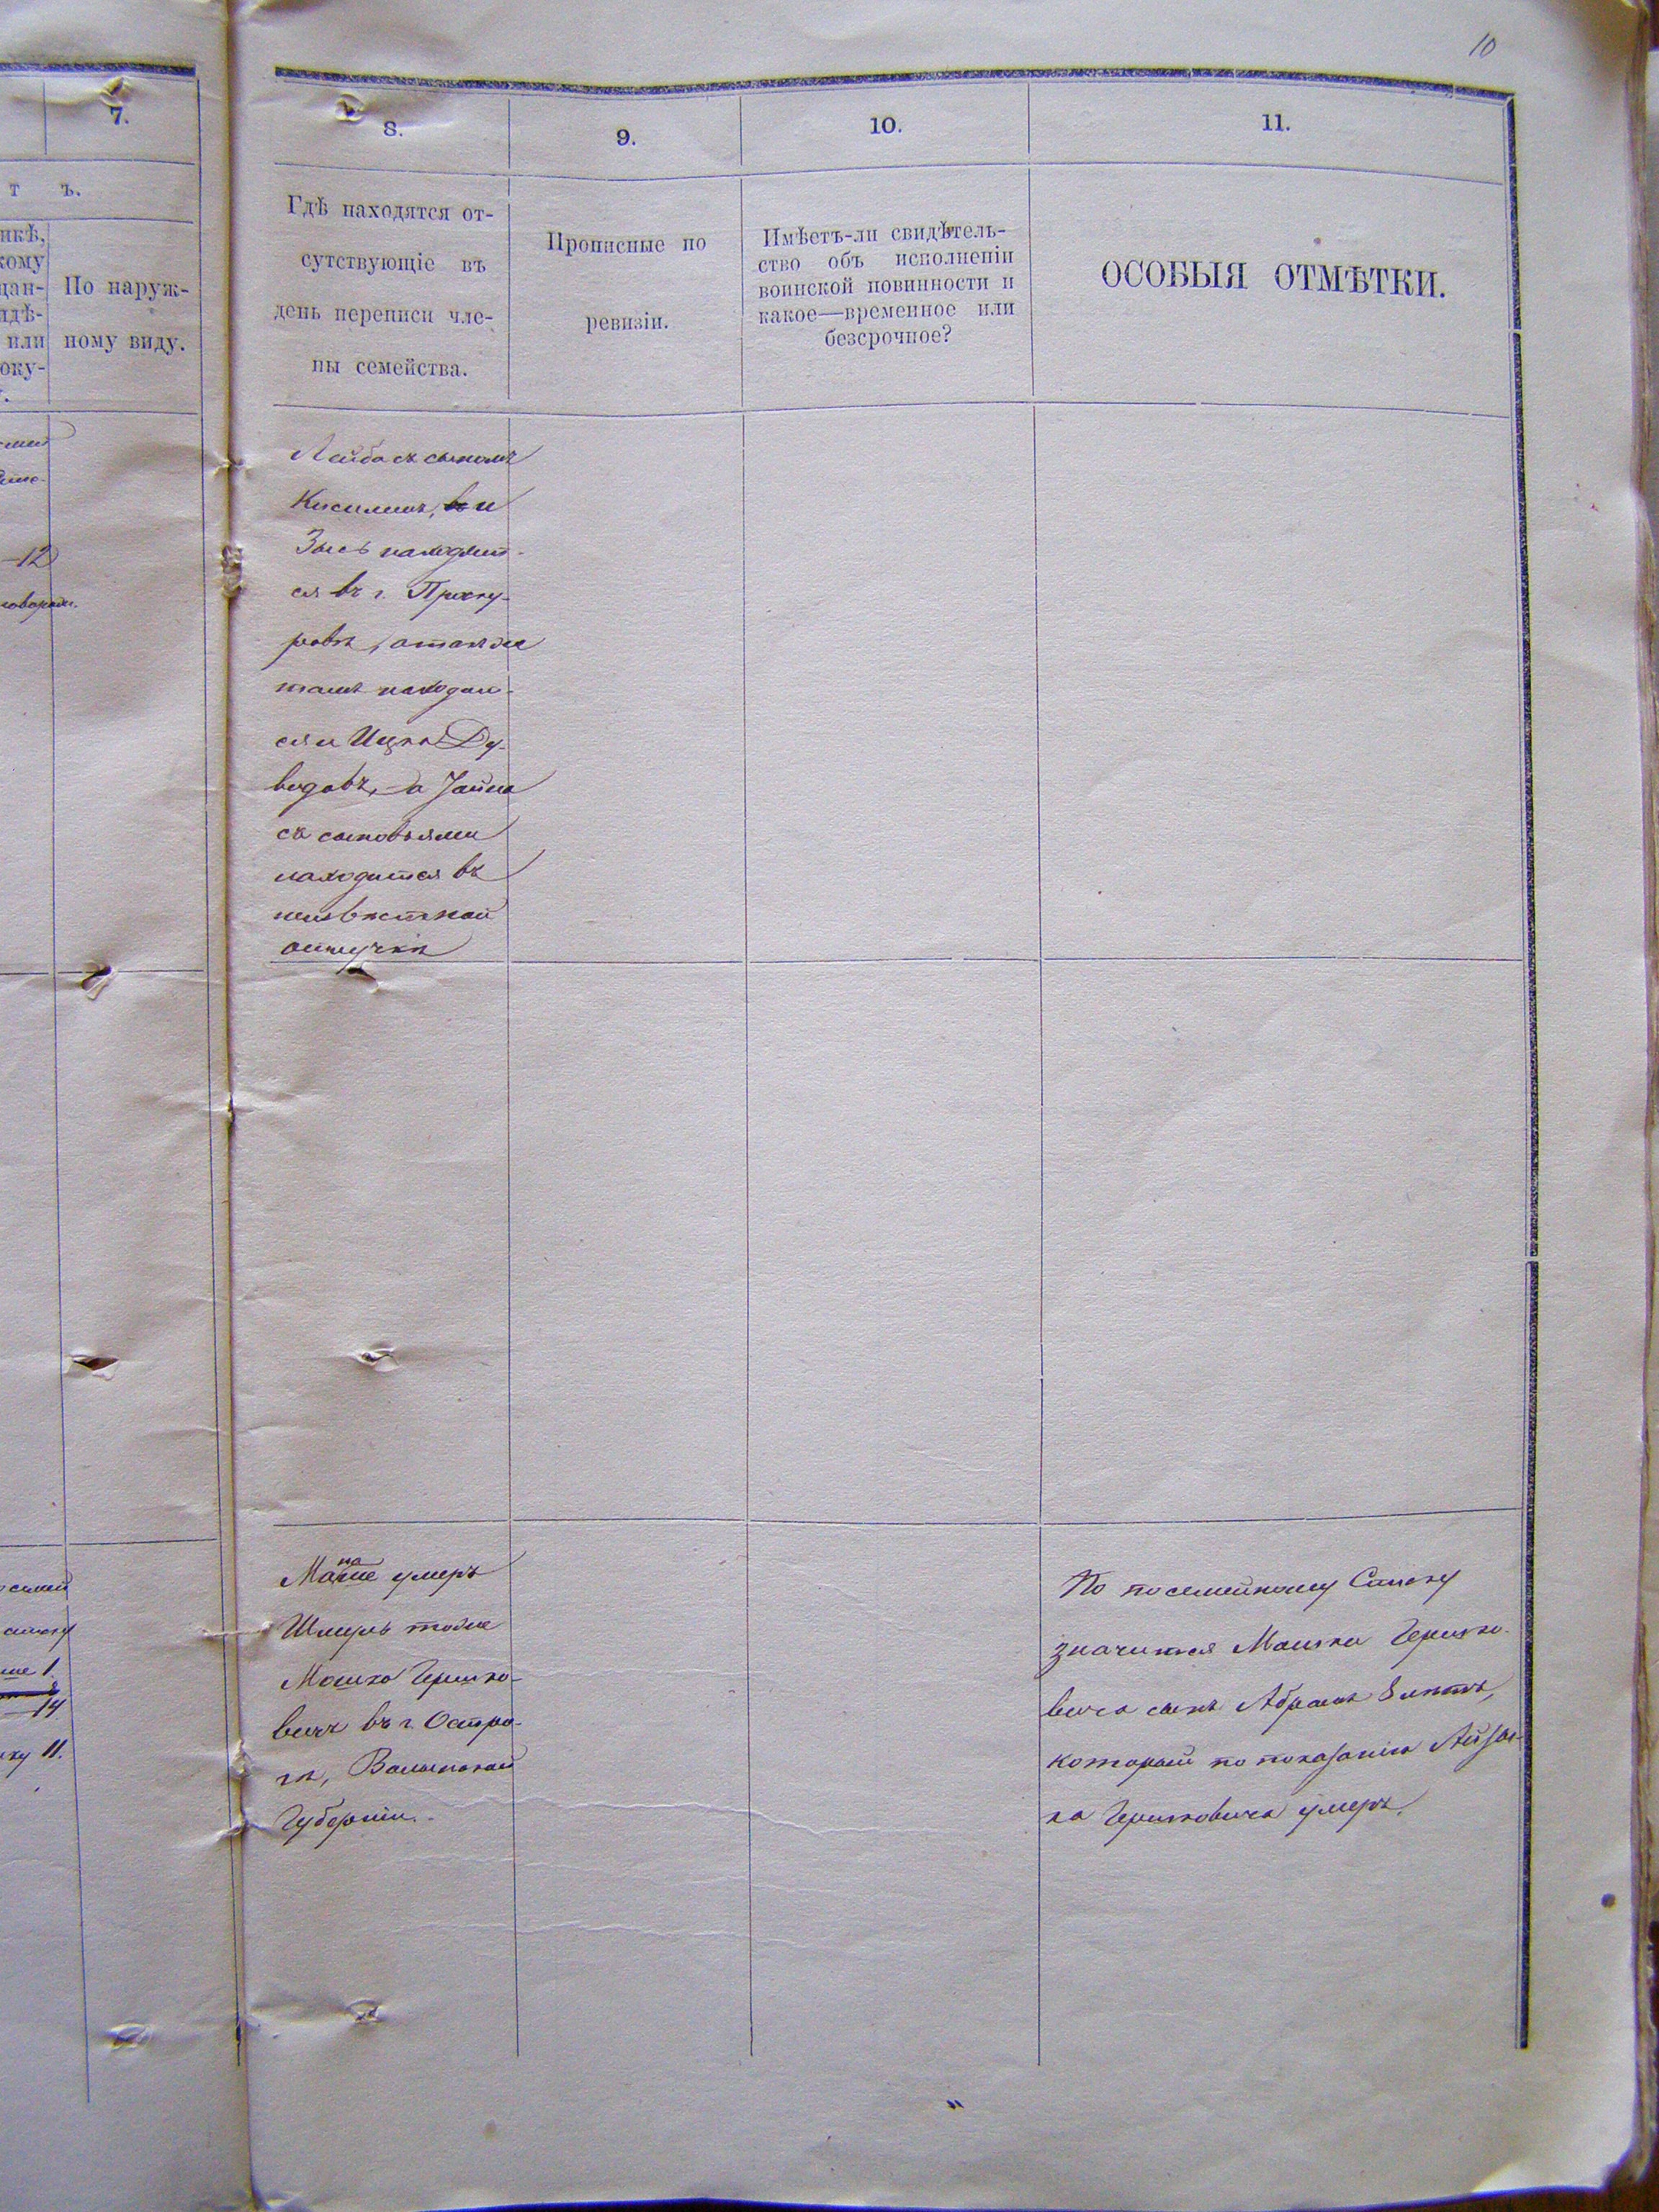 10
7.
т ъ.
нкѣ,
кому
цан-
идѣ-
или
оку-
По наруж-
ному виду.
12
8.
9.
10.
11.
Гдѣ находятся от-
сутствующіе въ
день переписи чле-
ны семейства.
Прописные по
ревизіи.
Имѣетъ-ли свидѣтель-
ство объ исполненіи
воинской повинности и
какое—временное или
безсрочное?
ОСОБЫЯ ОТМѢТКИ.
Лейба съ сыномъ
и
Зысь находит-
ся въ г. Проску-
ровѣ, а также
тамъ находит-
ся и Ицко Ду-
видовъ, а
съ сыновьями
находится въ
неизвѣстной
отлучкѣ
умеръ
Шмуль тоже
Мошко Гершко-
вичъ въ г. Остро-
гѣ, Волынской
Губерніи.
семей
14
11.
По посемейному Списку
значится Мошки Гершко-
вича сынъ Абрамъ 8 лѣтъ,
который по показанію Айзи-
ка Гершковича умеръ.